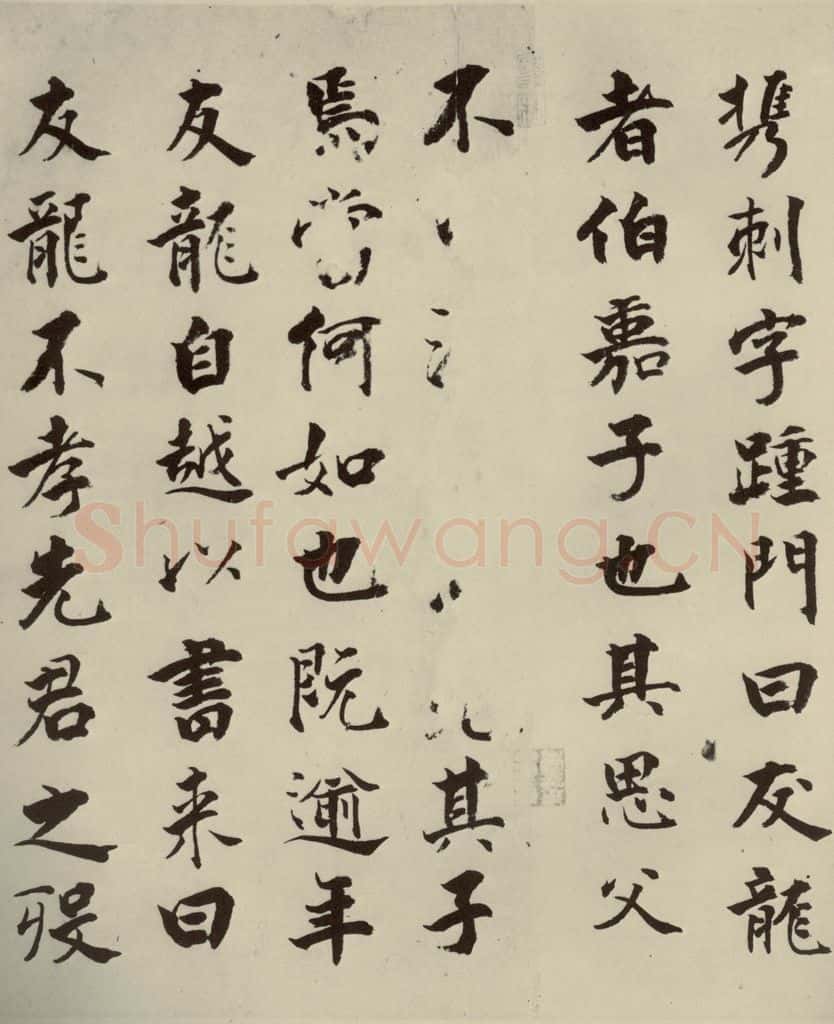 攜刺字踵門曰友龍
者伯嘉子也其思父
不其子
焉當何如也既逾年
友龍自越以書来曰
友龍不孝先君之歿
Shufawang.CN